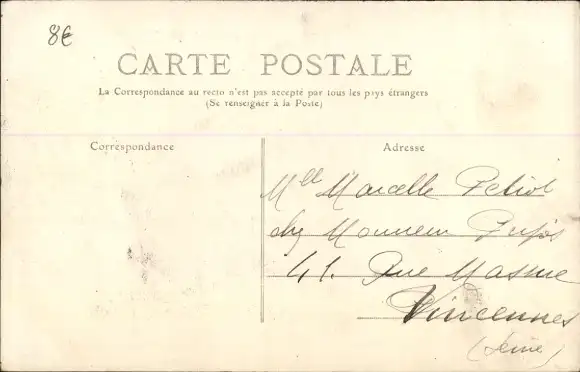 8€
CARTE POSTALE
La Correspondance au recto n'est pas accepté par tous les pays étrangers
(Se renseigner à la Poste)
Correspondance
Adresse
Mlle Marcelle Petiot
chez Monsieur
41. Rue Massue
Vincennes
(Seine)